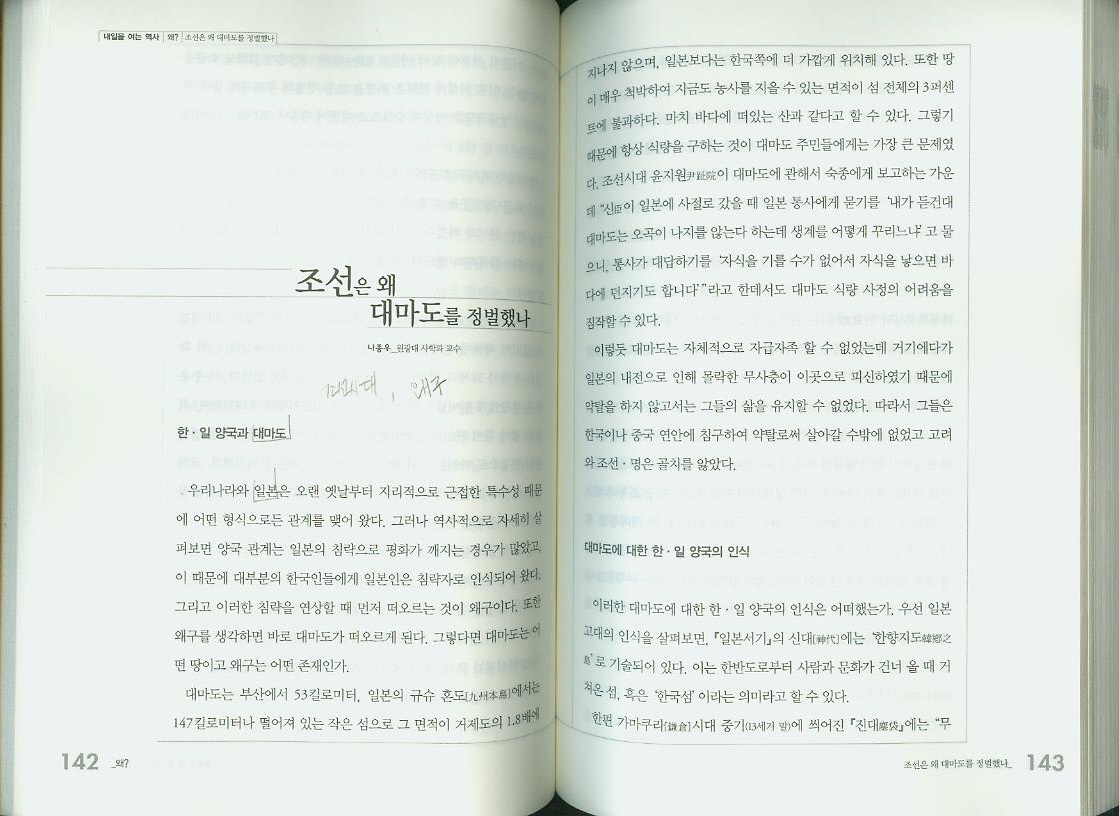 내일을 여는 역사 | 왜? | 조선은 왜 대마도를 정벌했나
조선은 왜
대마도를 정벌했나
나종우_원광대 사학과 교수
왜구
한·일 양국과 대마도
우리나라와 일본은 오랜 옛날부터 지리적으로 근접한 특수성 때문
에 어떤 형식으로든 관계를 맺어 왔다. 그러나 역사적으로 자세히 살
펴보면 양국 관계는 일본의 침략으로 평화가 깨지는 경우가 많았고,
이 때문에 대부분의 한국인들에게 일본인은 침략자로 인식되어 왔다.
그리고 이러한 침략을 연상할 때 먼저 떠오르는 것이 왜구이다. 또한
왜구를 생각하면 바로 대마도가 떠오르게 된다. 그렇다면 대마도는 어
떤 땅이고 왜구는 어떤 존재인가.
대마도는 부산에서 53킬로미터, 일본의 규슈 혼도[九州本島]에서는
147킬로미터나 떨어져 있는 작은 섬으로 그 면적이 거제도의 1.8배에
142 _왜?
지나지 않으며, 일본보다는 한국쪽에 더 가깝게 위치해 있다. 또한 땅
이 매우 척박하여 지금도 농사를 지을 수 있는 면적이 섬 전체의 3퍼센
트에 불과하다. 마치 바다에 떠있는 산과 같다고 할 수 있다. 그렇기
때문에 항상 식량을 구하는 것이 대마도 주민들에게는 가장 큰 문제였
다. 조선시대 윤지원尹趾院이 대마도에 관해서 숙종에게 보고하는 가운
데 “신臣이 일본에 사절로 갔을 때 일본 통사에게 묻기를 ‘내가 듣건대
대마도는 오곡이 나지를 않는다 하는데 생계를 어떻게 꾸리느냐’고 물
으니, 통사가 대답하기를 ‘자식을 기를 수가 없어서 자식을 낳으면 바
다에 던지기도 합니다’”라고 한데서도 대마도 식량 사정의 어려움을
짐작할 수 있다.
이렇듯 대마도는 자체적으로 자급자족 할 수 없었는데 거기에다가
일본의 내전으로 인해 몰락한 무사층이 이곳으로 피신하였기 때문에
약탈을 하지 않고서는 그들의 삶을 유지할 수 없었다. 따라서 그들은
한국이나 중국 연안에 침구하여 약탈로써 살아갈 수밖에 없었고 고려
와 조선·명은 골치를 앓았다.
대마도에 대한 한·일 양국의 인식
이러한 대마도에 대한 한·일 양국의 인식은 어떠했는가. 우선 일본
고대의 인식을 살펴보면, 『일본서기』의 신대[神代]에는 ‘한향지도韓鄕之
島’로 기술되어 있다. 이는 한반도로부터 사람과 문화가 건너 올 때 거
쳐온 섬, 혹은 ‘한국섬’이라는 의미라고 할 수 있다.
한편 가마쿠라[鎌倉]시대 중기(13세기 말)에 씌어진 『진대塵袋』에는 “무
조선은 왜 대마도를 정벌했나_ 143